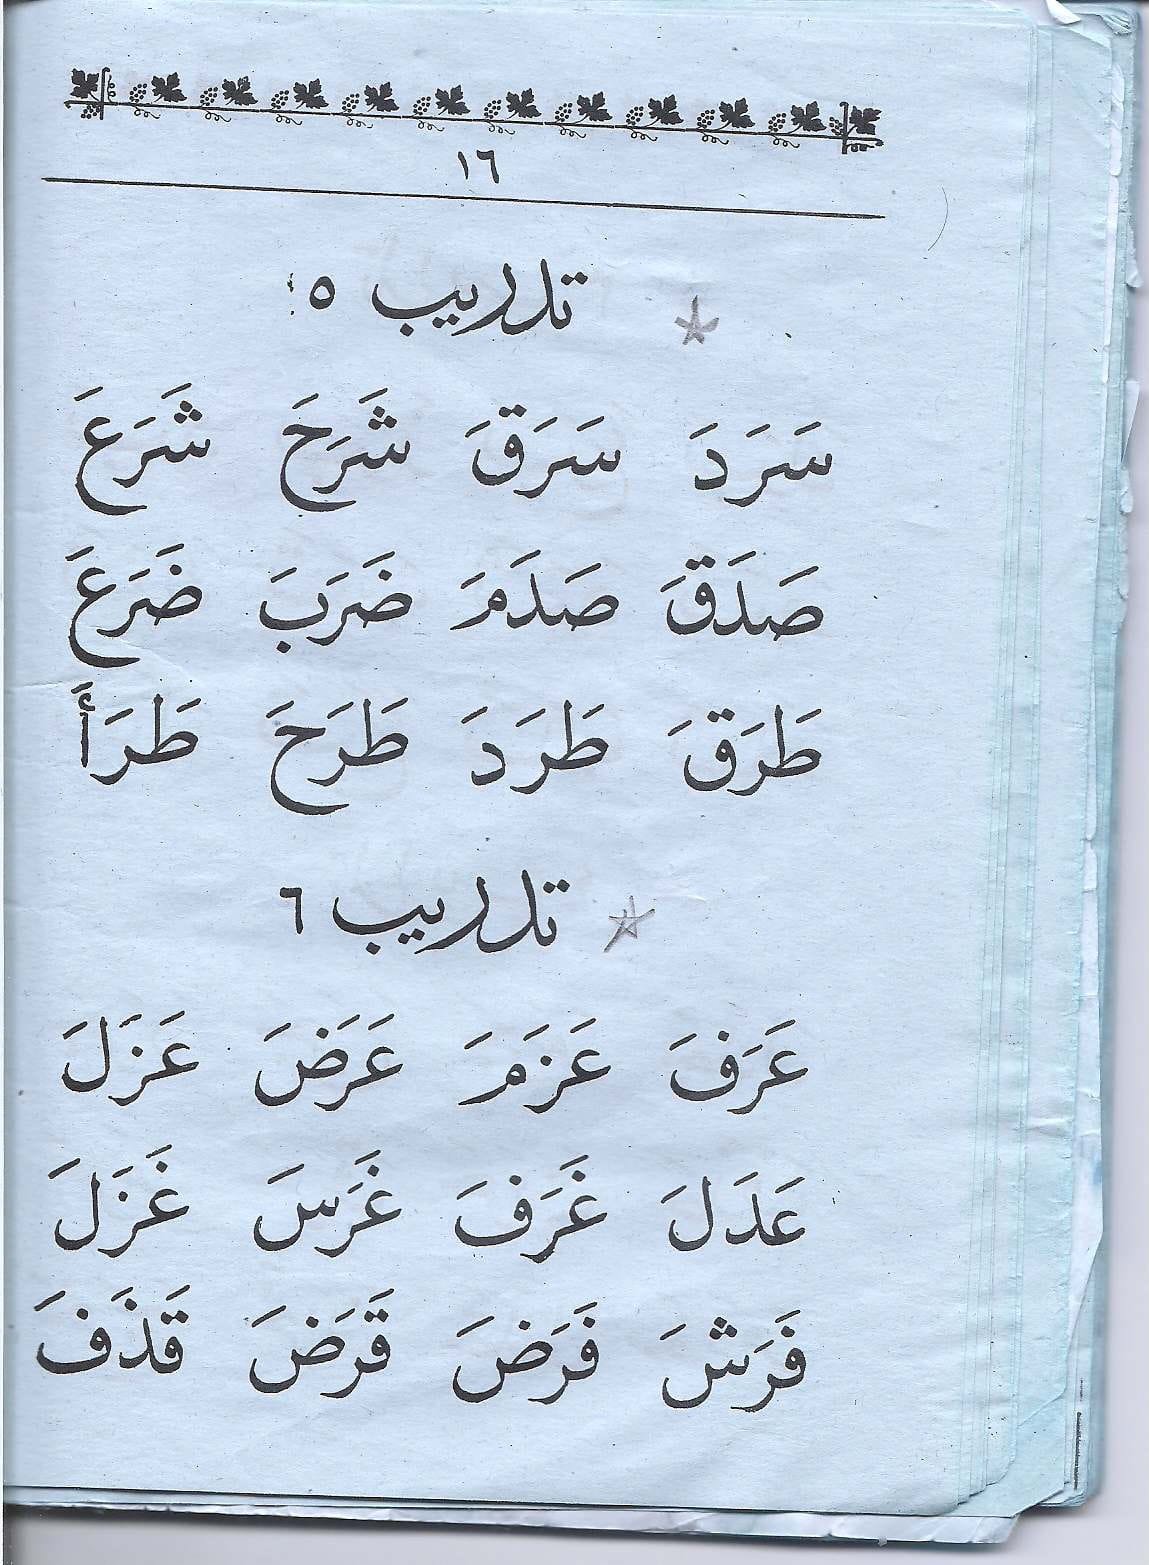 ١٦
تدريب ٥
سَرَدَ سَرَقَ شَرَحَ شَرَعَ
صَدَقَ صَدَمَ ضَرَبَ ضَرَعَ
طَرَقَ طَرَدَ طَرَحَ طَرَأَ
تدريب ٦
عَرَفَ عَزَمَ عَرَضَ عَزَلَ
عَدَلَ غَرَفَ غَرَسَ غَزَلَ
فَرَشَ فَرَضَ قَرَضَ قَذَفَ